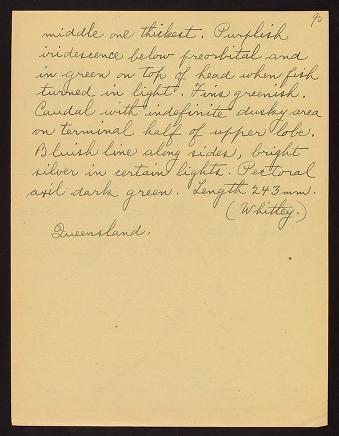 90
middle one thickest. Purplish
iridescence below preorbital and
in green on top of head when fish
turned in light. Fins greenish.
Caudal with indefinite dusky area
on terminal half of upper lobe.
Bluish line along sides, bright
silver in certain lights. Pectoral
axil dark green. Length 243 mm.
(Whitley.)
Queensland.